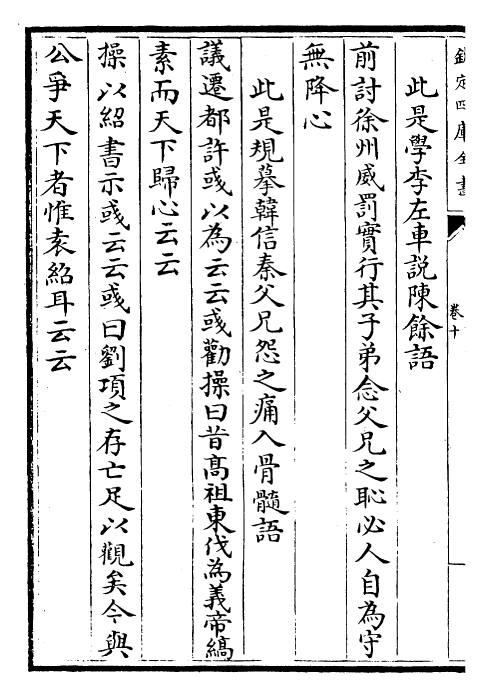 欽定四庫全書
卷十
此是學李左車説陳餘語
前討徐州威罰實行其子弟念父兄之恥必人自為守
無降心
此是規摹韓信秦父兄怨之痛入骨髓語
議遷都許彧以為云云彧勸操曰昔高祖東伐為義帝縞
素而天下歸心云云
操以紹書示彧云云彧曰劉項之存亡足以觀矣今與
公爭天下者惟袁紹耳云云